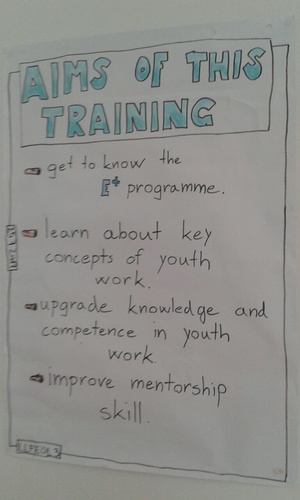 AIMS OF THIS
TRAINING
get to know the
E+ programme.
learn about key
concepts of youth
work.
upgrade knowledge and
competence in youth
work
improve mentorship
skill.